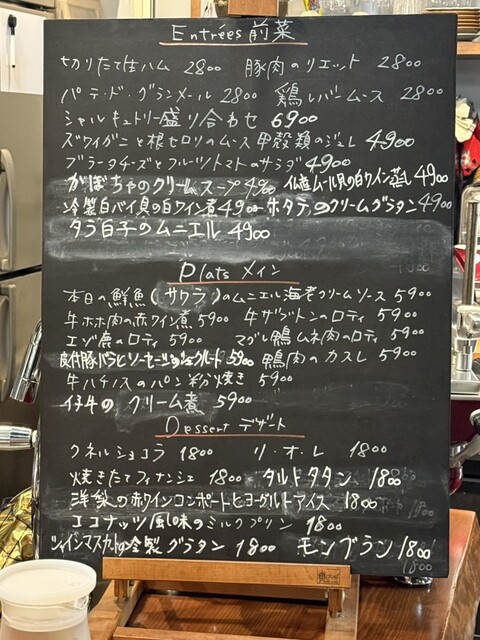 Entrées 前菜
切りたて生ハム 2800 豚肉のリエット 2800
パテ・ド・グランメール 2800 鶏レバームース 2800
シャルキュトリー盛り合わせ 6900
ズワイガニと根セロリのムース 甲殻類のジュレ 4900
ブラータチーズとフルーツトマトのサラダ 4900
かぼちゃのクリームスープ 仏産ムール貝の白ワイン蒸し 4900
冷製白バイ貝の白ワイン煮 4900 ホタテのクリームグラタン 4900
タラ白子のムニエル 4900
Plats メイン
本日の鮮魚(サワラ)のムニエル海老クリームソース 5900
牛ホホ肉の赤ワイン煮 5900 牛ザブトンのロティ 5900
エゾ鹿のロティ 5900 マグレ鴨ムネ肉のロティ 5900
皮付豚バラとソーセージのシュークルート 5900 鴨肉のカスレ 5900
牛ハチノスのパン粉焼き 5900
仔牛のクリーム煮 5900
Dessert デザート
クネルショコラ 1800 リ・オ・レ 1800
焼きたてフィナンシェ 1800 タルトタタン 1800
洋梨の赤ワインコンポートとヨーグルトアイス 1800
ココナッツ風味のミルクプリン 1800
シャインマスカットの冷製グラタン 1800 モンブラン 1800